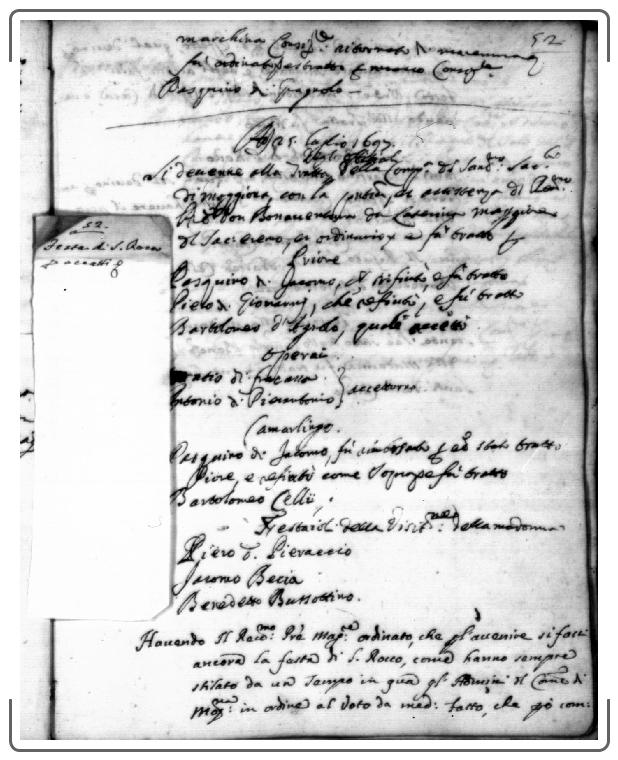 52
marchino Consig.re ritornato di maremma
fu ordinato estratto Consig.re
Pasquino di Spagnolo
A dì 25. Luglio 1697
degli Offizali
Si devenne alla Tratta della Comp.a del Sant.mo Sac.
di Moggiona, con la et assistenza di
Don Bonaventura da Maggiore
del Sac: eremo, et ordinario e fu tratto
Priore
Pasquino di Jacomo, rifiutò, e fu tratto
Piero di Giovanni, che refiutò, e fu tratto
Bartolomeo d'Agnolo, quale accettò
Operai
di fracasso
Antonio di Pierantonio } accettorno
Camarlingo.
Pasquino di Jacomo, fu stato tratto
Piore, e refiutò come sopra e fu tratto
Bartolomeo Celli.
Festaioli della Visit.ne della madonna
Piero di Pieraccio
Jacomo Becia
Benedetto Bussottino.
Havendo Il P.re Mag.re ordinato, che p l'avenire si facci
ancora la festa di S. Rocco, come hanno sempre
stilato da un Tempo in qua gl' Il di
Mog.a: in ordine al Voto da med: fatto, che p com:
52.
Festa di S. Rocco